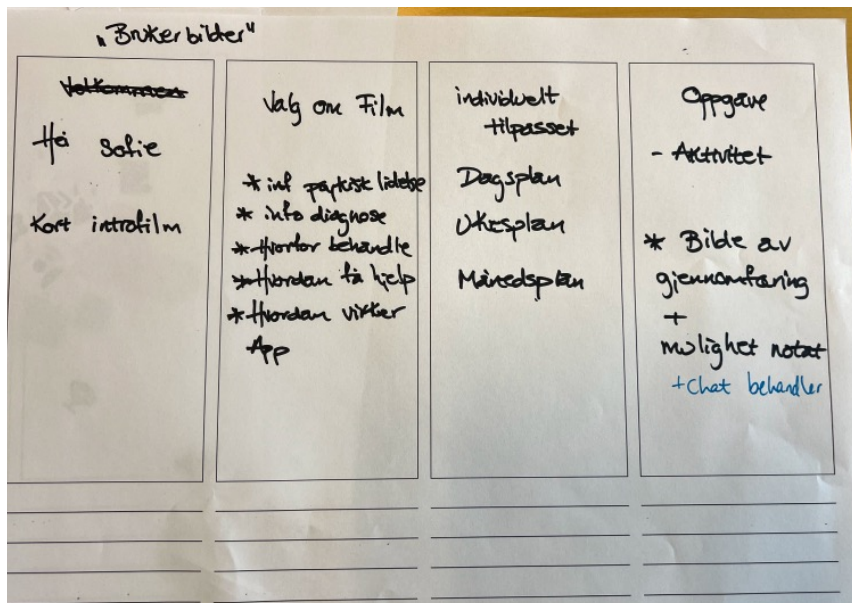 „Brukerbilder"
Velkommen
Hei Sofie
Kort introfilm
Valg om Film
* inf psykisk lidelse
* info diagnose
* Hvorfor behandle
* Hvordan få hjelp
* Hvordan virker
App
individuelt
tilpasset
Dagsplan
Ukesplan
Månedsplan
Oppgave
- Aktivitet
* Bilde av
gjennomføring
+
mulighet notat
+ Chat behandler